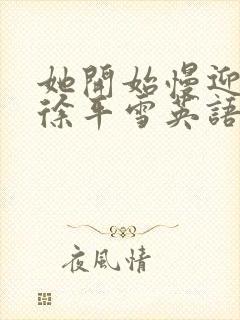 她開始慢迎
徐年雪英語
夜風情